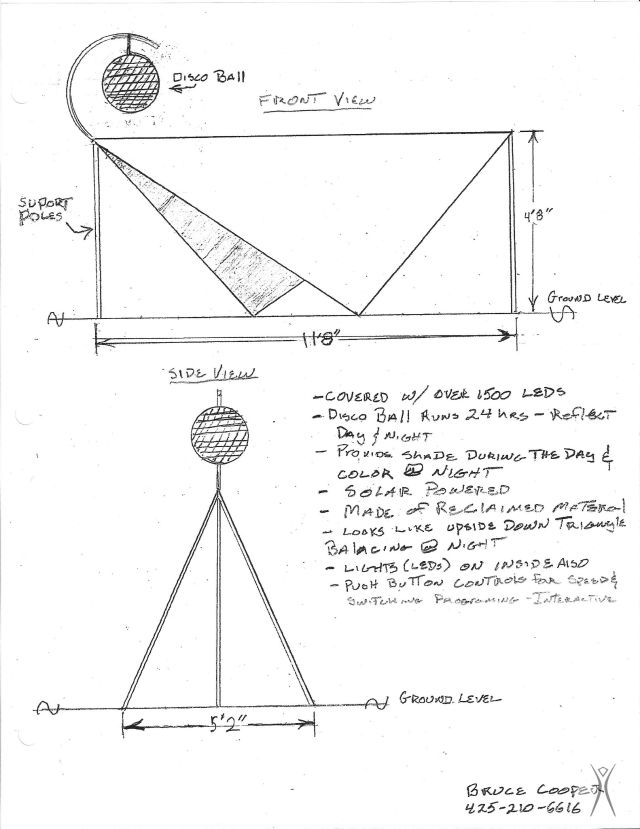 DISCO BALL
FRONT VIEW
SUPORT
POLES
4'8"
GROUND LEVEL
11'8"
SIDE VIEW
- COVERED W/ OVER 1500 LEDS
- DISCO BALL RUNS 24 HRS - REFLECT
DAY & NIGHT
- PROVIDE SHADE DURING THE DAY &
COLOR @ NIGHT
- SOLAR POWERED
- MADE OF RECLAIMED MATERIAL
- LOOKS LIKE UPSIDE DOWN TRIANGLE
BALACING @ NIGHT
- LIGHTS (LEDS) ON INSIDE ALSO
- PUSH BUTTON CONTROLS FOR SPEED &
SWITCHING PROGRAMING - INTERACTIVE
GROUND LEVEL
5'2"
BRUCE COOPER
425-210-6616